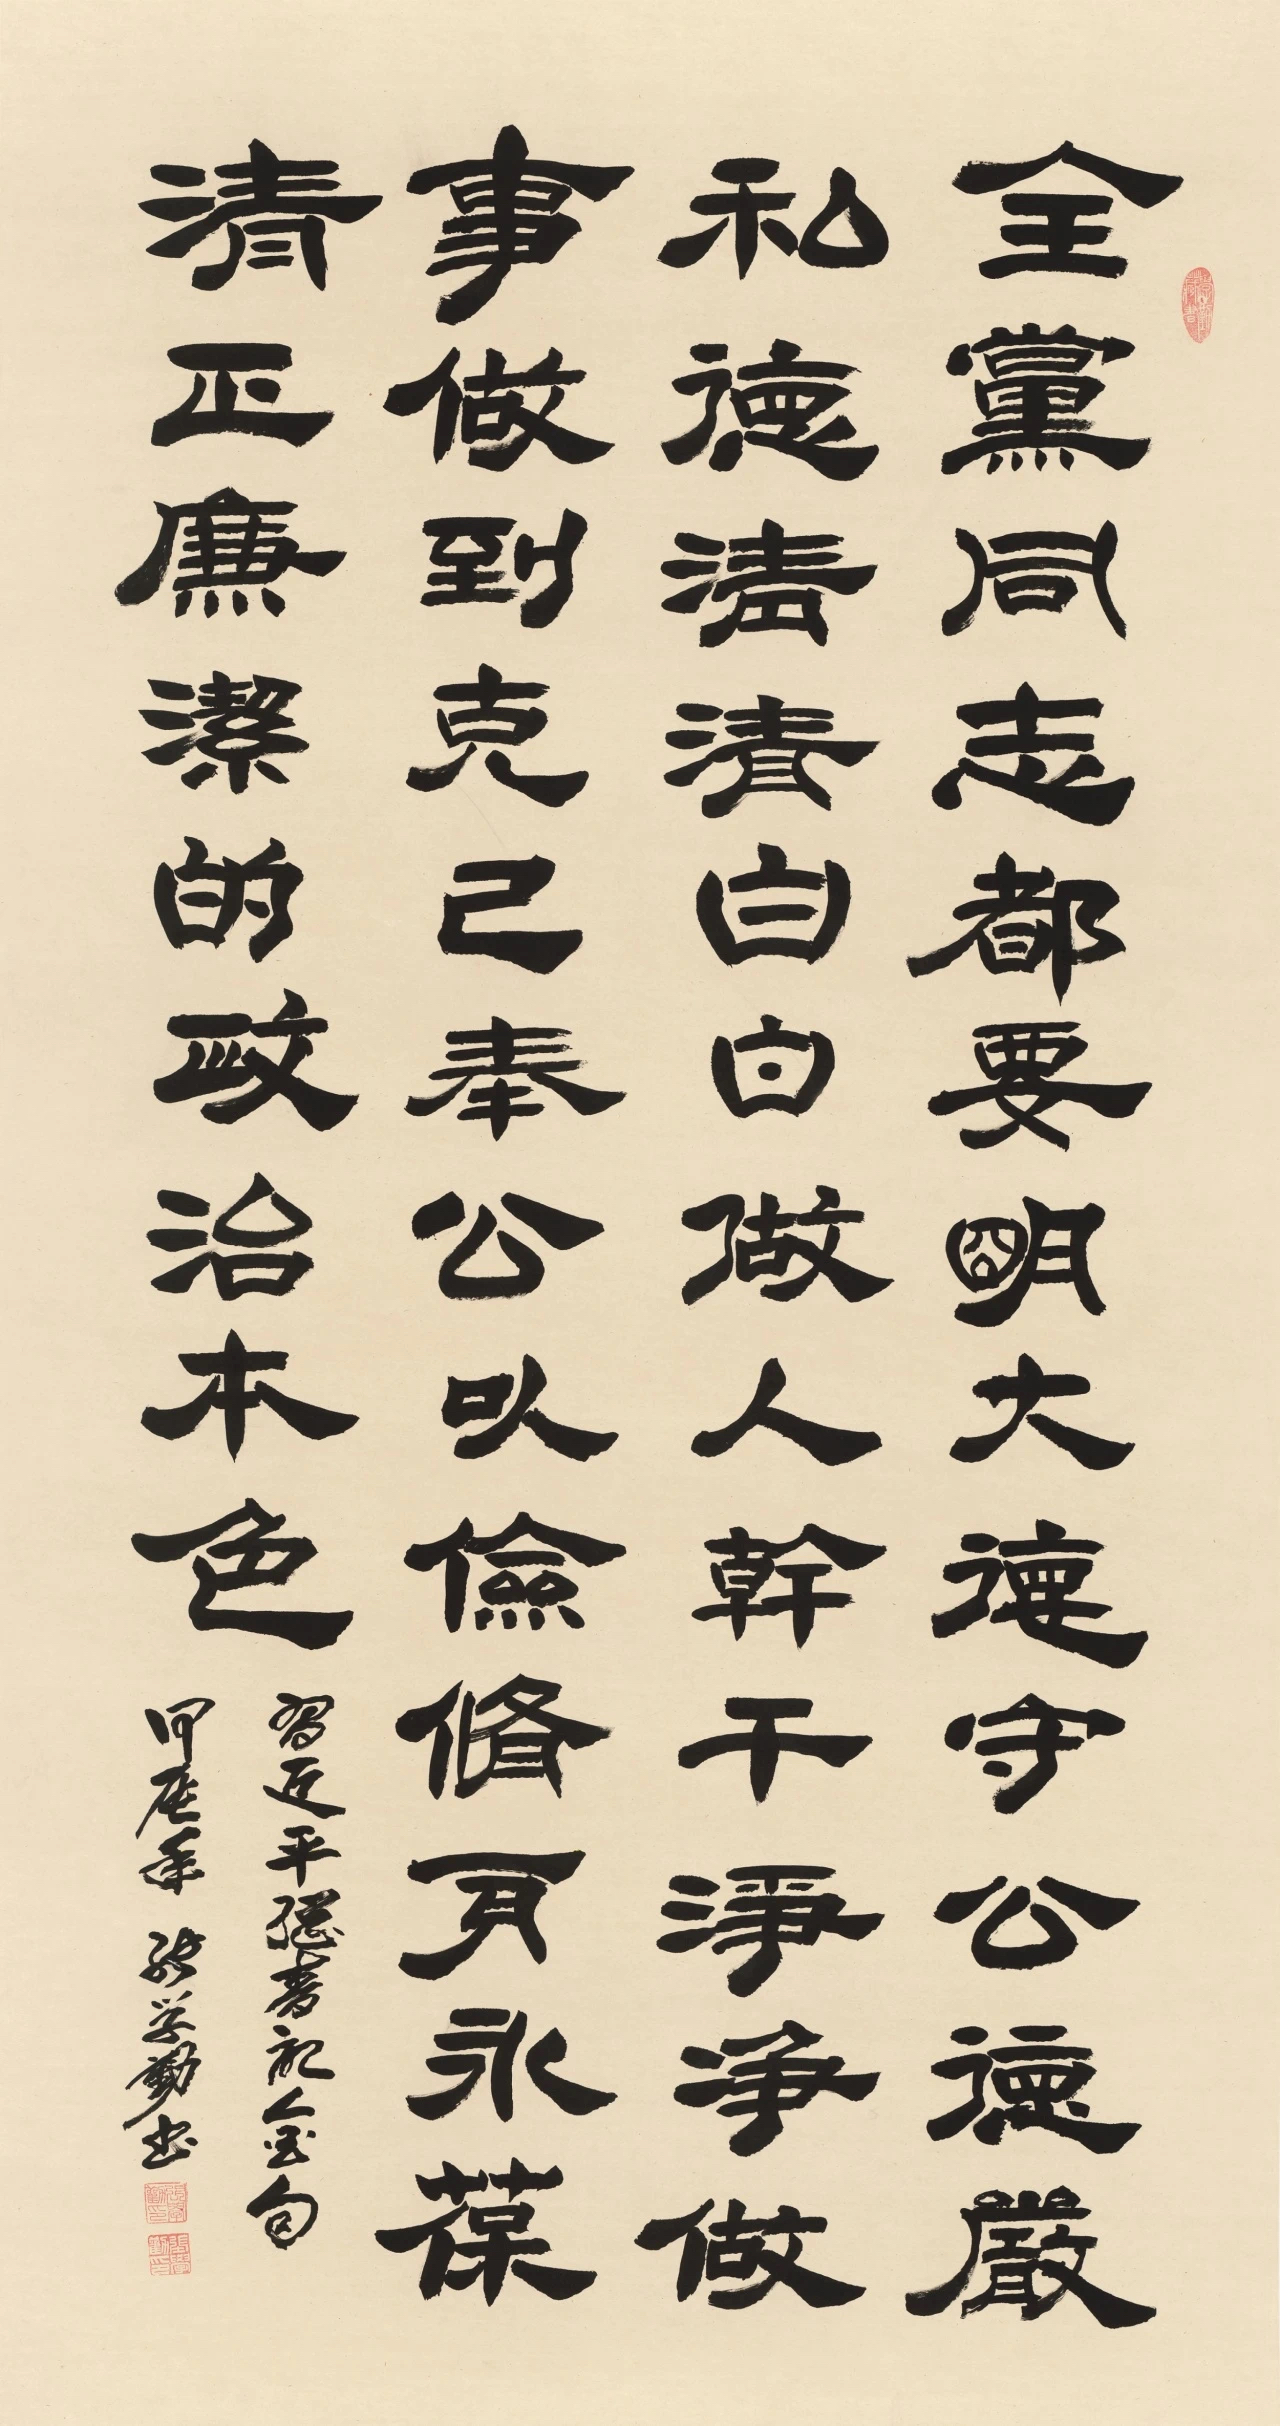 全黨同志都要明大德守公德嚴
私德清清白白做人幹干淨净做
事做到克己奉公以儉脩身永葆
清正廉潔的政治本色
習近平總書記金句
甲辰年張学勤书